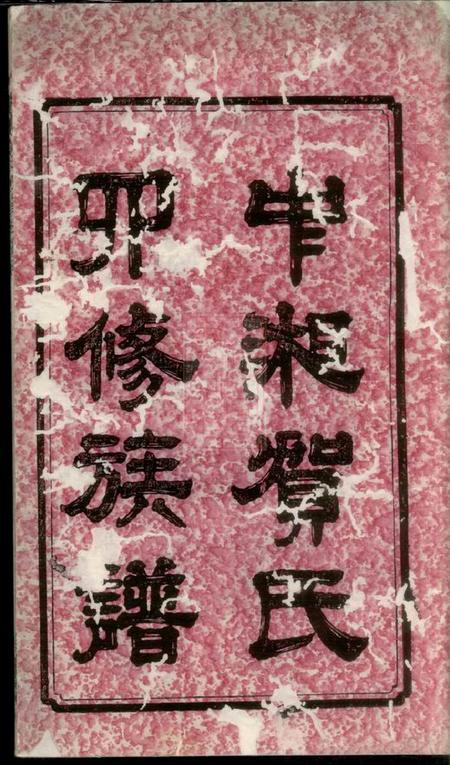 中湘賀氏
四修族譜